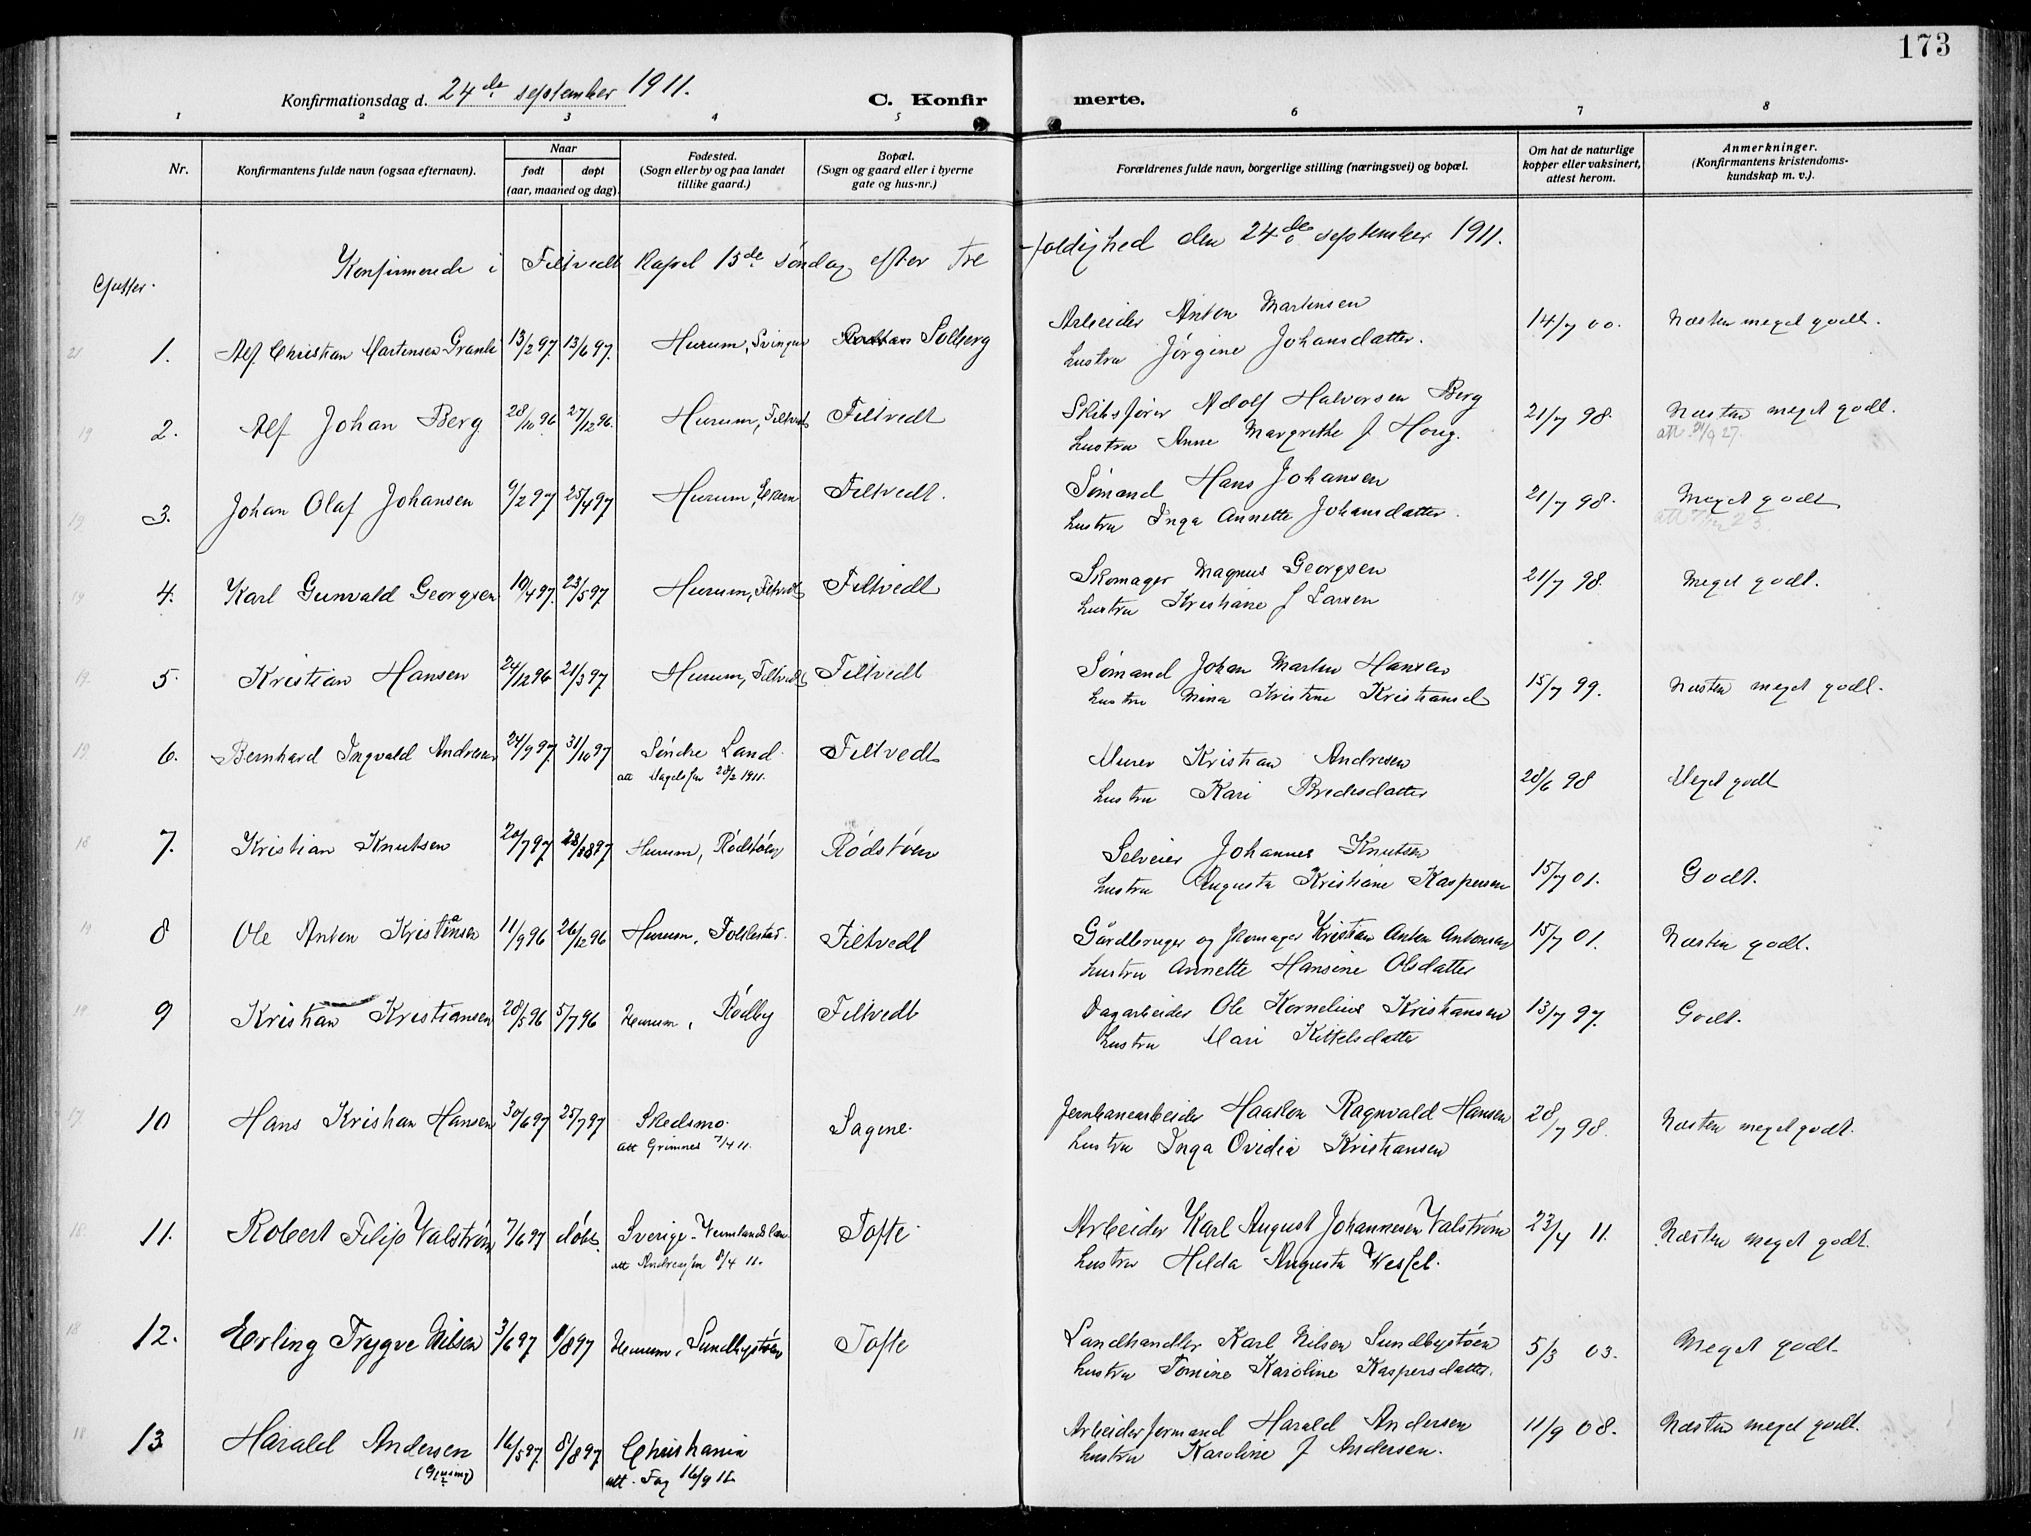 173
Konfirmationsdag d. 24de september 1911.
C. Konfir merte.
1 2 3 4 5 6 7 8
Nr.
Konfirmantens fulde navn (ogsaa efternavn).
Naar
født døpt
(aar, maaned og dag).
Fødested.
(Sogn eller by og paa landet
tillike gaard.)
Bopæl.
(Sogn og gaard eller i byerne
gate og hus-nr.)
Forældrenes fulde navn, borgerlige stilling (næringsvei) og bopæl.
Om hat de naturlige
kopper eller vaksinert,
attest herom.
Anmerkninger.
(Konfirmantens kristendoms-
kundskap m. v.).
Konfirmerede i Filtvedt Kapel 15de søndag efter Tre foldighed den 24de september 1911.
Gutter.
1. Alf Christian Martensen Granli 13/2 97 13/6 97. Hurum, Solberg
Arbeider Anton Martinsen 14/7 00. Næsten meget godt.
hustru Jørgine Johansdatter.
2. Alf Johan Berg 28/10 96 27/12 96. Hurum, Filtvedt Filtvedt
Skibsfører Adolf Halvorsen Berg 21/7 98. Næsten meget godt.
hustru Anne Margrethe f Houg. att 27.
3. Johan Olaf Johansen 9/2 97 25/4 97 Hurum, Ekern Filtvedt.
Sømand Hans Johansen 21/7 98. Meget godt
hustru Inga Annette Johansdatter.
4. Karl Gunvald Georgsen 19/4 97. 23/5 97 Hurum, Filtvedt Filtvedt
Skomager Magnus Georgsen 21/7 98. Meget godt.
hustru Kristiane f Larsen
5. Kristian Hansen 24/12 96 21/3 97 Hurum, Filtvedt Filtvedt
Sømand Johan Martin Hansen 15/7 99. Næsten meget godt.
hustru Mina Kristine Kristiansd
6. Bernhard Ingvald Andresen 24/9 97 31/10 97 Søndre Land. Filtvedt
att 28/2 1911.
Murer Kristian Andresen 28/6 98 Meget godt
hustru Kari Bredesdatter
7. Kristian Knutsen 20/7 97 28/8 97 Hurum, Rødstøen Rødstøen
Selveier Johannes Knutsen 15/7 01. Godt.
hustru Augusta Kristiane Kaspersen
8 Ole Anton Kristiansen 11/9 96 26/12 96 Hurum, Folkestad. Filtvedt
Gårdbruger og skomager Kristian Anton Antonsen 15/7 01. Næsten godt.
hustru Annette Hansine Olsdatter
9 Kristian Kristiansen 28/5 96 5/7 96 Hurum, Rødby Filtvedt
Dagarbeider Ole Kornelius Kristiansen 13/7 97. Godt.
hustru Mari Kittelsdatter
10 Hans Kristian Hansen 30/6 97 25/7 97 Skedsmo. Sagene.
att Grimnes 7/4 11.
Jernbanearbeider Haakon Ragnvald Hansen 28/7 98. Næsten meget godt.
hustru Inga Ovidia Kristiansen
11. Robert Filip Valstrøm 7/6 97 døbt. Sverige - Vermlands län Tofte.
att 8/4 11.
Arbeider Karl August Johannesen Valstrøm 23/4 11. Næsten meget godt.
hustru Hilda Augusta Wessel.
12. Erling Trygve Nilsen 3/6 97 1/8 97 Hurum, Sundbystøen Tofte
Landhandler Karl Nilsen Sundbystøen 5/3 03. Meget godt
hustru Tomine Karoline Kaspersdatter.
13 Harald Andersen 16/5 97 8/8 97 Christiania
att. 16/9 11
Arbeider formand Harald Andersen 11/9 08. Næsten meget godt.
hustru Karoline f Andersen.